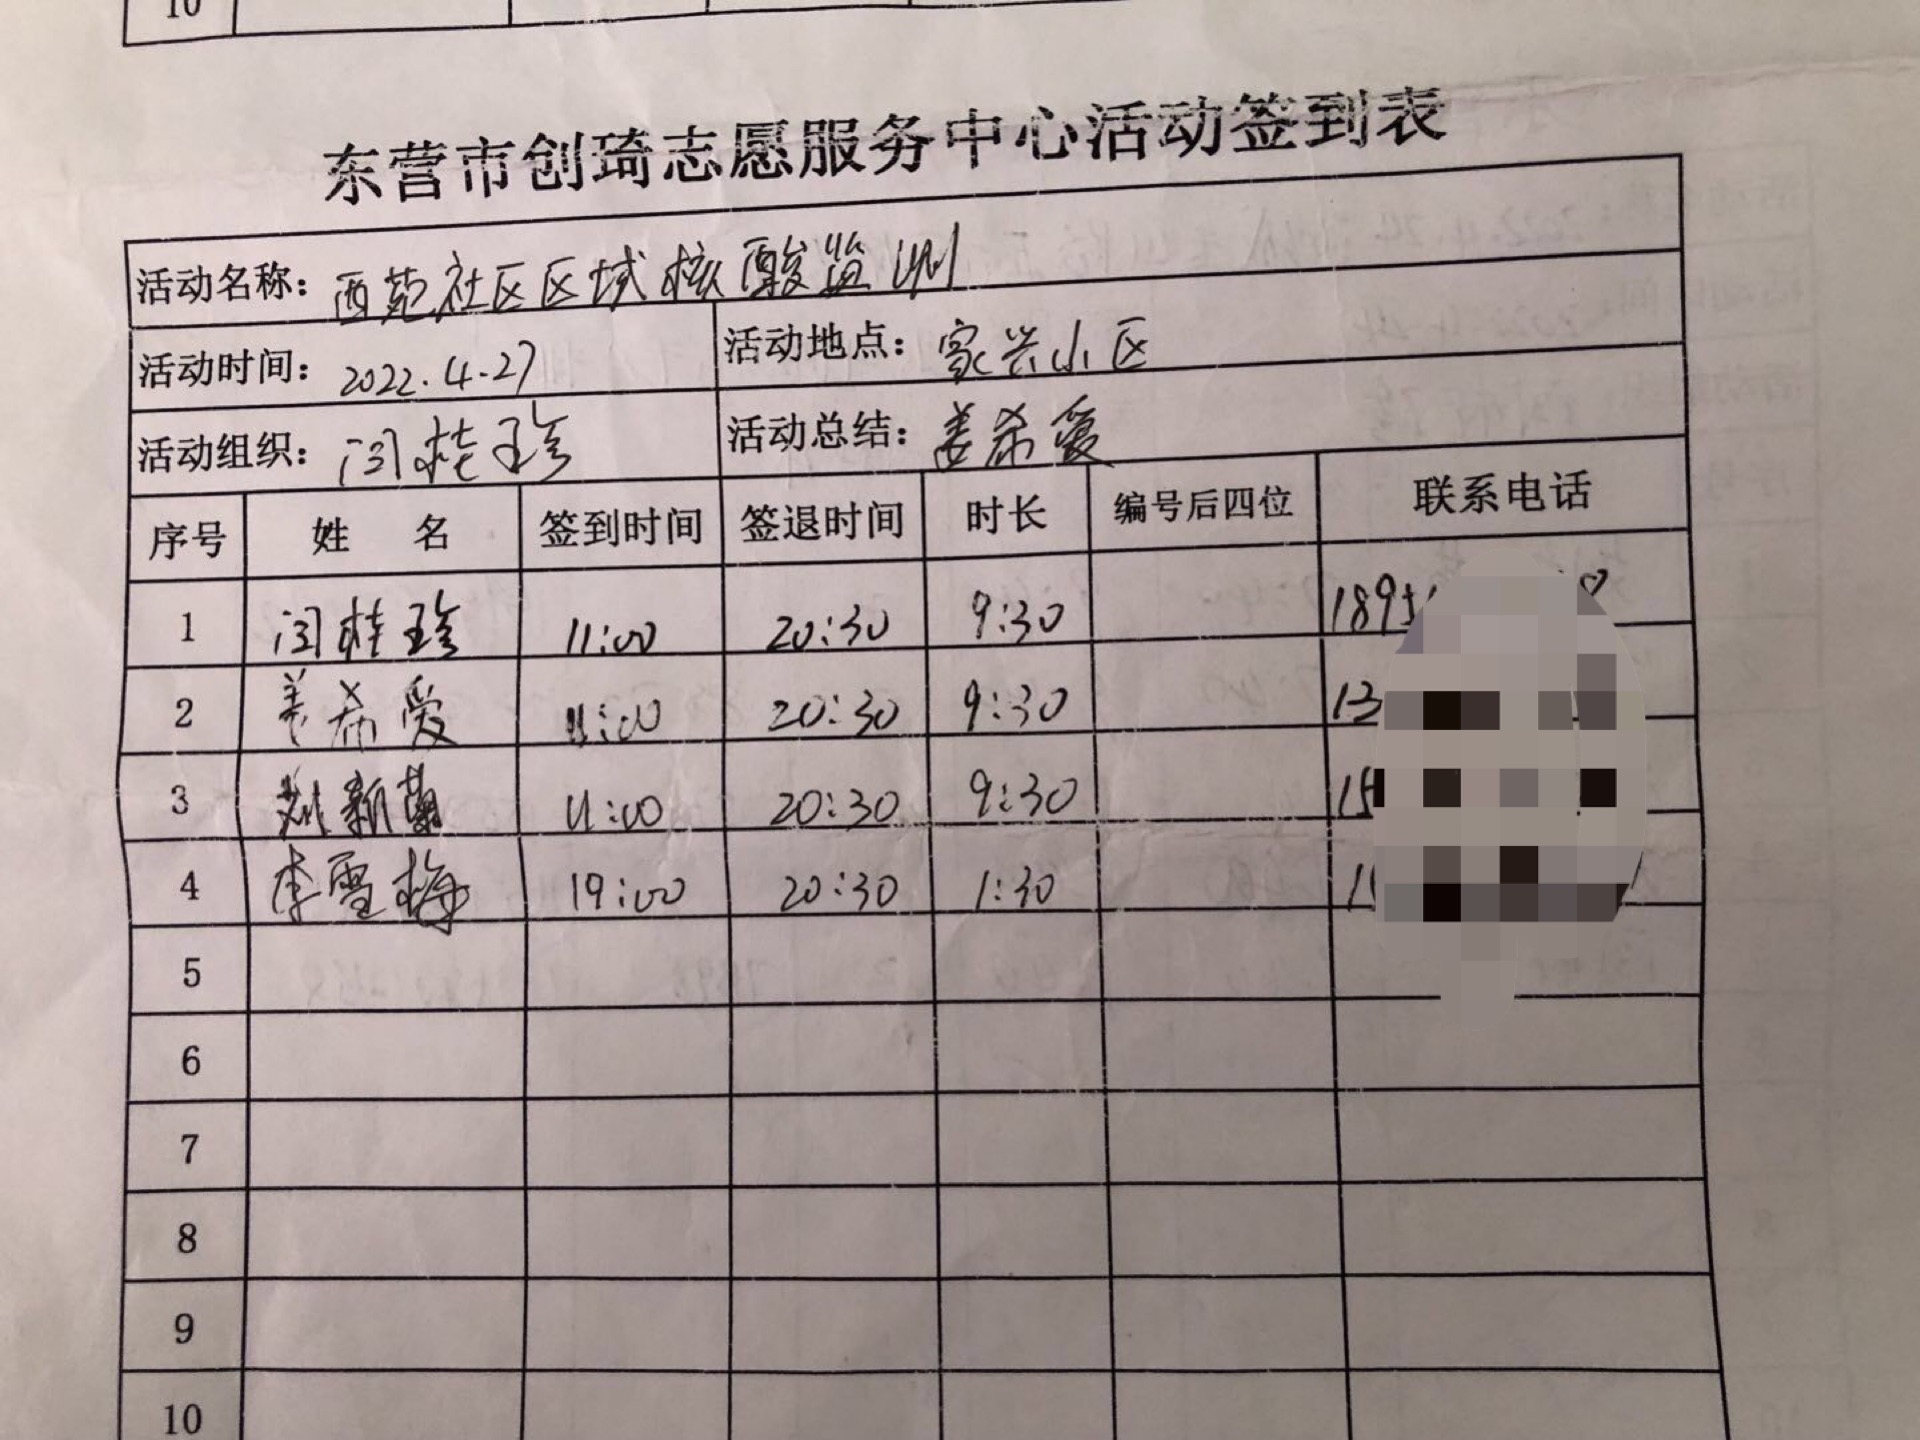 10
东营市创琦志愿服务中心活动签到表
活动名称：西苑社区区域核酸监测
活动时间：2022.4.27 活动地点：家兴小区
活动组织：闫桂珍 活动总结：姜希爱
序号 姓 名 签到时间 签退时间 时长 编号后四位 联系电话
1 闫桂珍 11:00 20:30 9:30 189
2 姜希爱 11:00 20:30 9:30 13
3 刘新菊 11:00 20:30 9:30 15
4 李雪梅 19:00 20:30 1:30 1
5
6
7
8
9
10